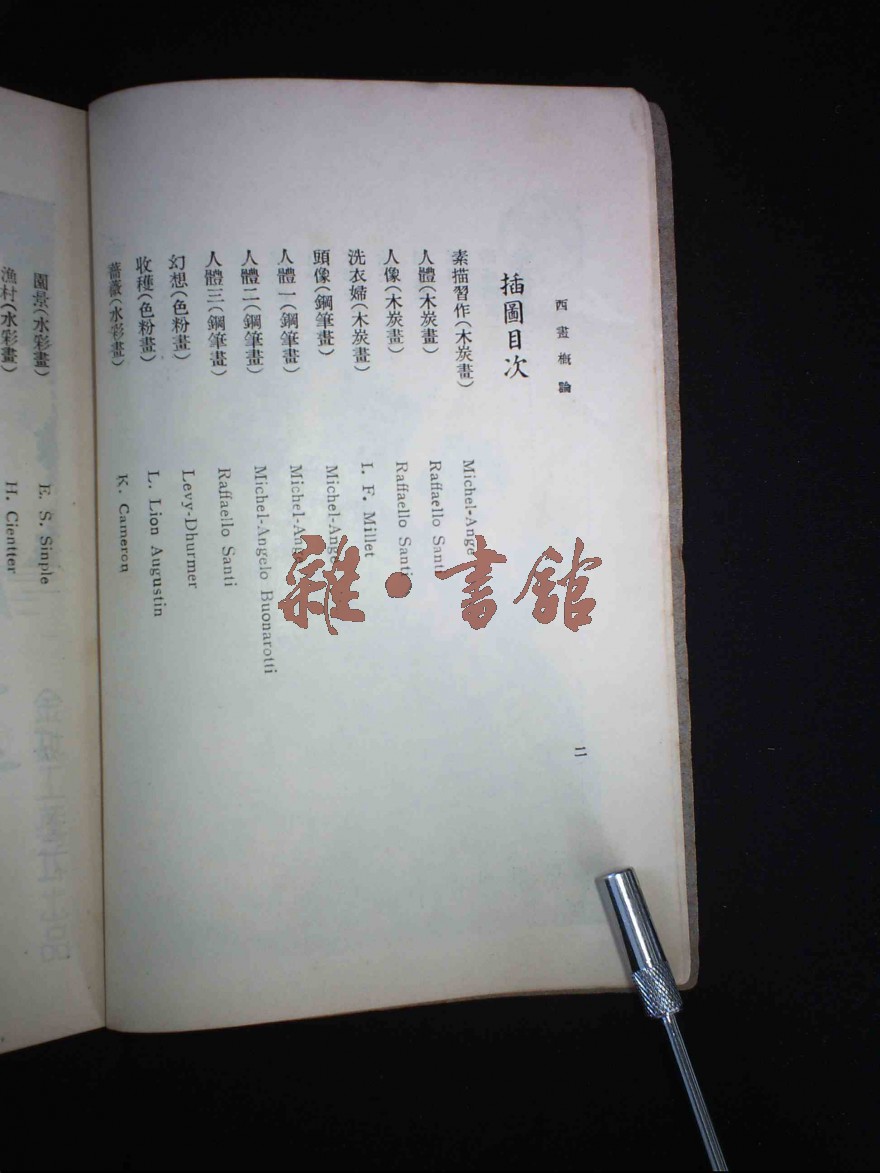 西畫概論
插圖目次
素描習作(木炭畫) Michel-Ange
人體(木炭畫) Raffaello Santi
人像(木炭畫) Raffaello Santi
洗衣婦(木炭畫) I. F. Millet
頭像(鋼筆畫) Michel-Ange
人體一(鋼筆畫) Michel-Ange
人體二(鋼筆畫) Michel-Angelo Buonarotti
人體三(鋼筆畫) Raffaello Santi
幻想(色粉畫) Levy-Dhurmer
收穫(色粉畫) L. Lion Augustin
薔薇(水彩畫) K. Cameron
二
園景(水彩畫) E. S. Sinple
漁村(水彩畫) H. Cientter
雜·書館